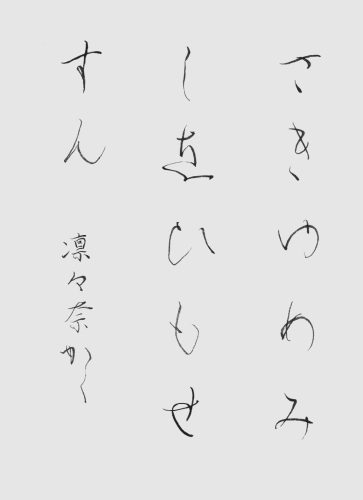 さきゆめみ
しゑひもせ
すん 凛々奈かく